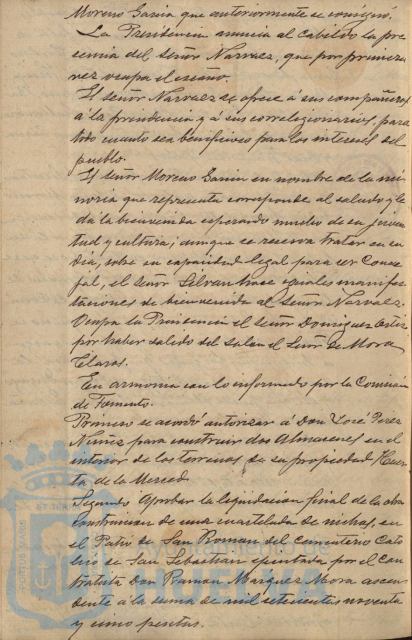 Moreno Garcia que anteriormente se consignó.
La Presidencia anuncia al Cabildo la pre
sencia del Señor Narvaez, que por primera
vez ocupa el escaño.
El señor Narvaez se ofrece á sus compañeros
á la presidencia y á sus correligionarios, para
todo cuanto sea beneficioso para los intereses del
pueblo.
El señor Moreno Garcia en nombre de la mi
noria que representa corresponde al saludo y le
dá la bienvenida esperando mucho de su juven
tud y cultura; aunque se reserva tratar en su
dia, sobre su capacidad legal para ser Conce
jal, el señor Silvan hace iguales manifes
taciones de bienvenida al Señor Narvaez.
Ocupa la Presidencia el señor Dominguez
por haber salido del salon el Señor de Mora
Claros.
En armonia con lo informado por la Comision
de Fomento.
Primero se acordó autorizar á Don José Perez
Nuñez para construir dos Almacenes en el
interior de los terrenos de su propiedad Huer
ta de la Merced.
Segundo Aprobar la liquidacion final de la obra
construccion de una cuartelada de nichos, en
el Patio de San Roman del Cementerio Cato
lico de San Sebastian ejecutada por el Con
tratista Don Ramon Marquez Mora ascen
dente á la suma de mil setecientas noventa
y cinco pesetas.
Ayuntamiento de
HUELVA